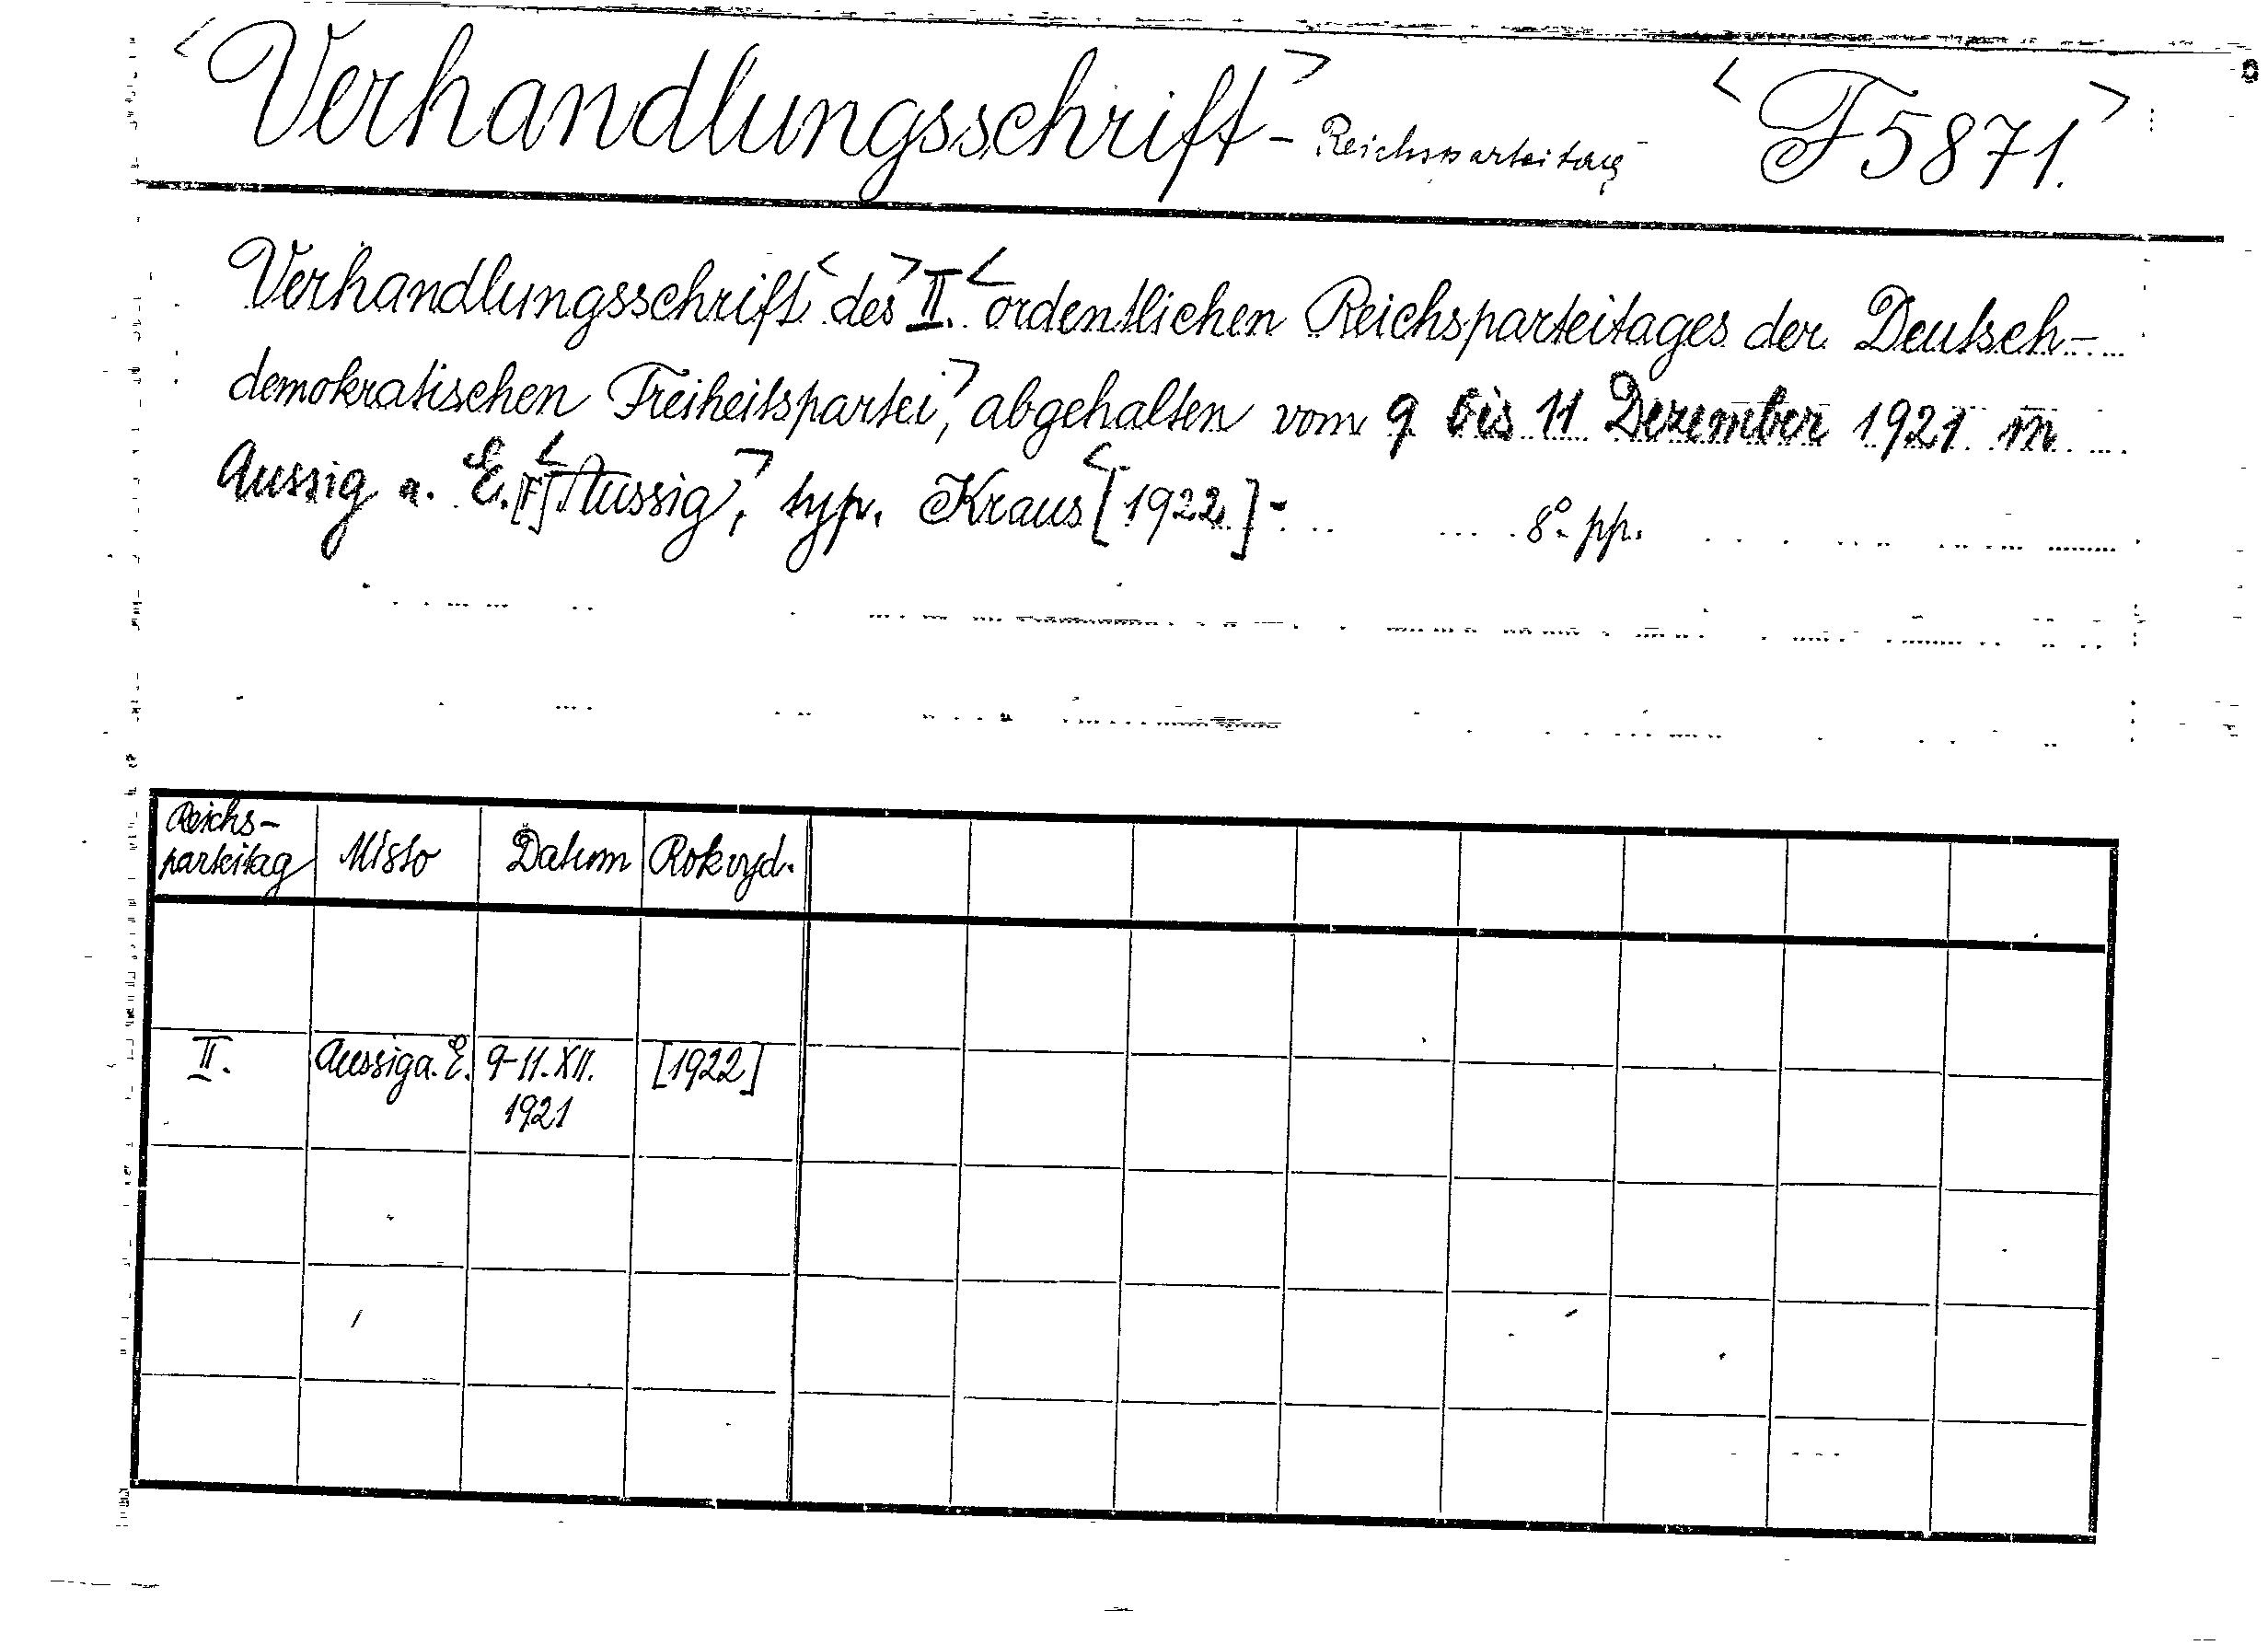 <Verhandlungsschrift> - Reichsparteitag <F 5871.>
Verhandlungsschrift <des> II. <ordentlichen Reichsparteitages der Deutsch-
demokratischen Freiheitspartei>, abgehalten vom 9 bis 11 Dezember 1921 in
Aussig a. E. [F] <Aussig>, typ. Kraus <[1922] - 8° - pp.
Reichs- Místo Datum Rok vyd.
parteitag
II. Aussig a. E. 9-11. XII. [1922]
1921